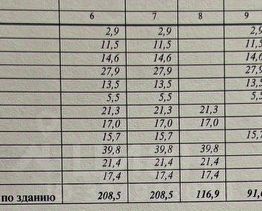 6 7 8 9
2,9 2,9 2,9
11,5 11,5 11,5
14,6 14,6 14,6
27,9 27,9 27,9
13,5 13,5 13,5
5,5 5,5 5,5
21,3 21,3 21,3
17,0 17,0 17,0
15,7 15,7 15,7
39,8 39,8 39,8
21,4 21,4 21,4
17,4 17,4 17,4
по зданию 208,5 208,5 116,9